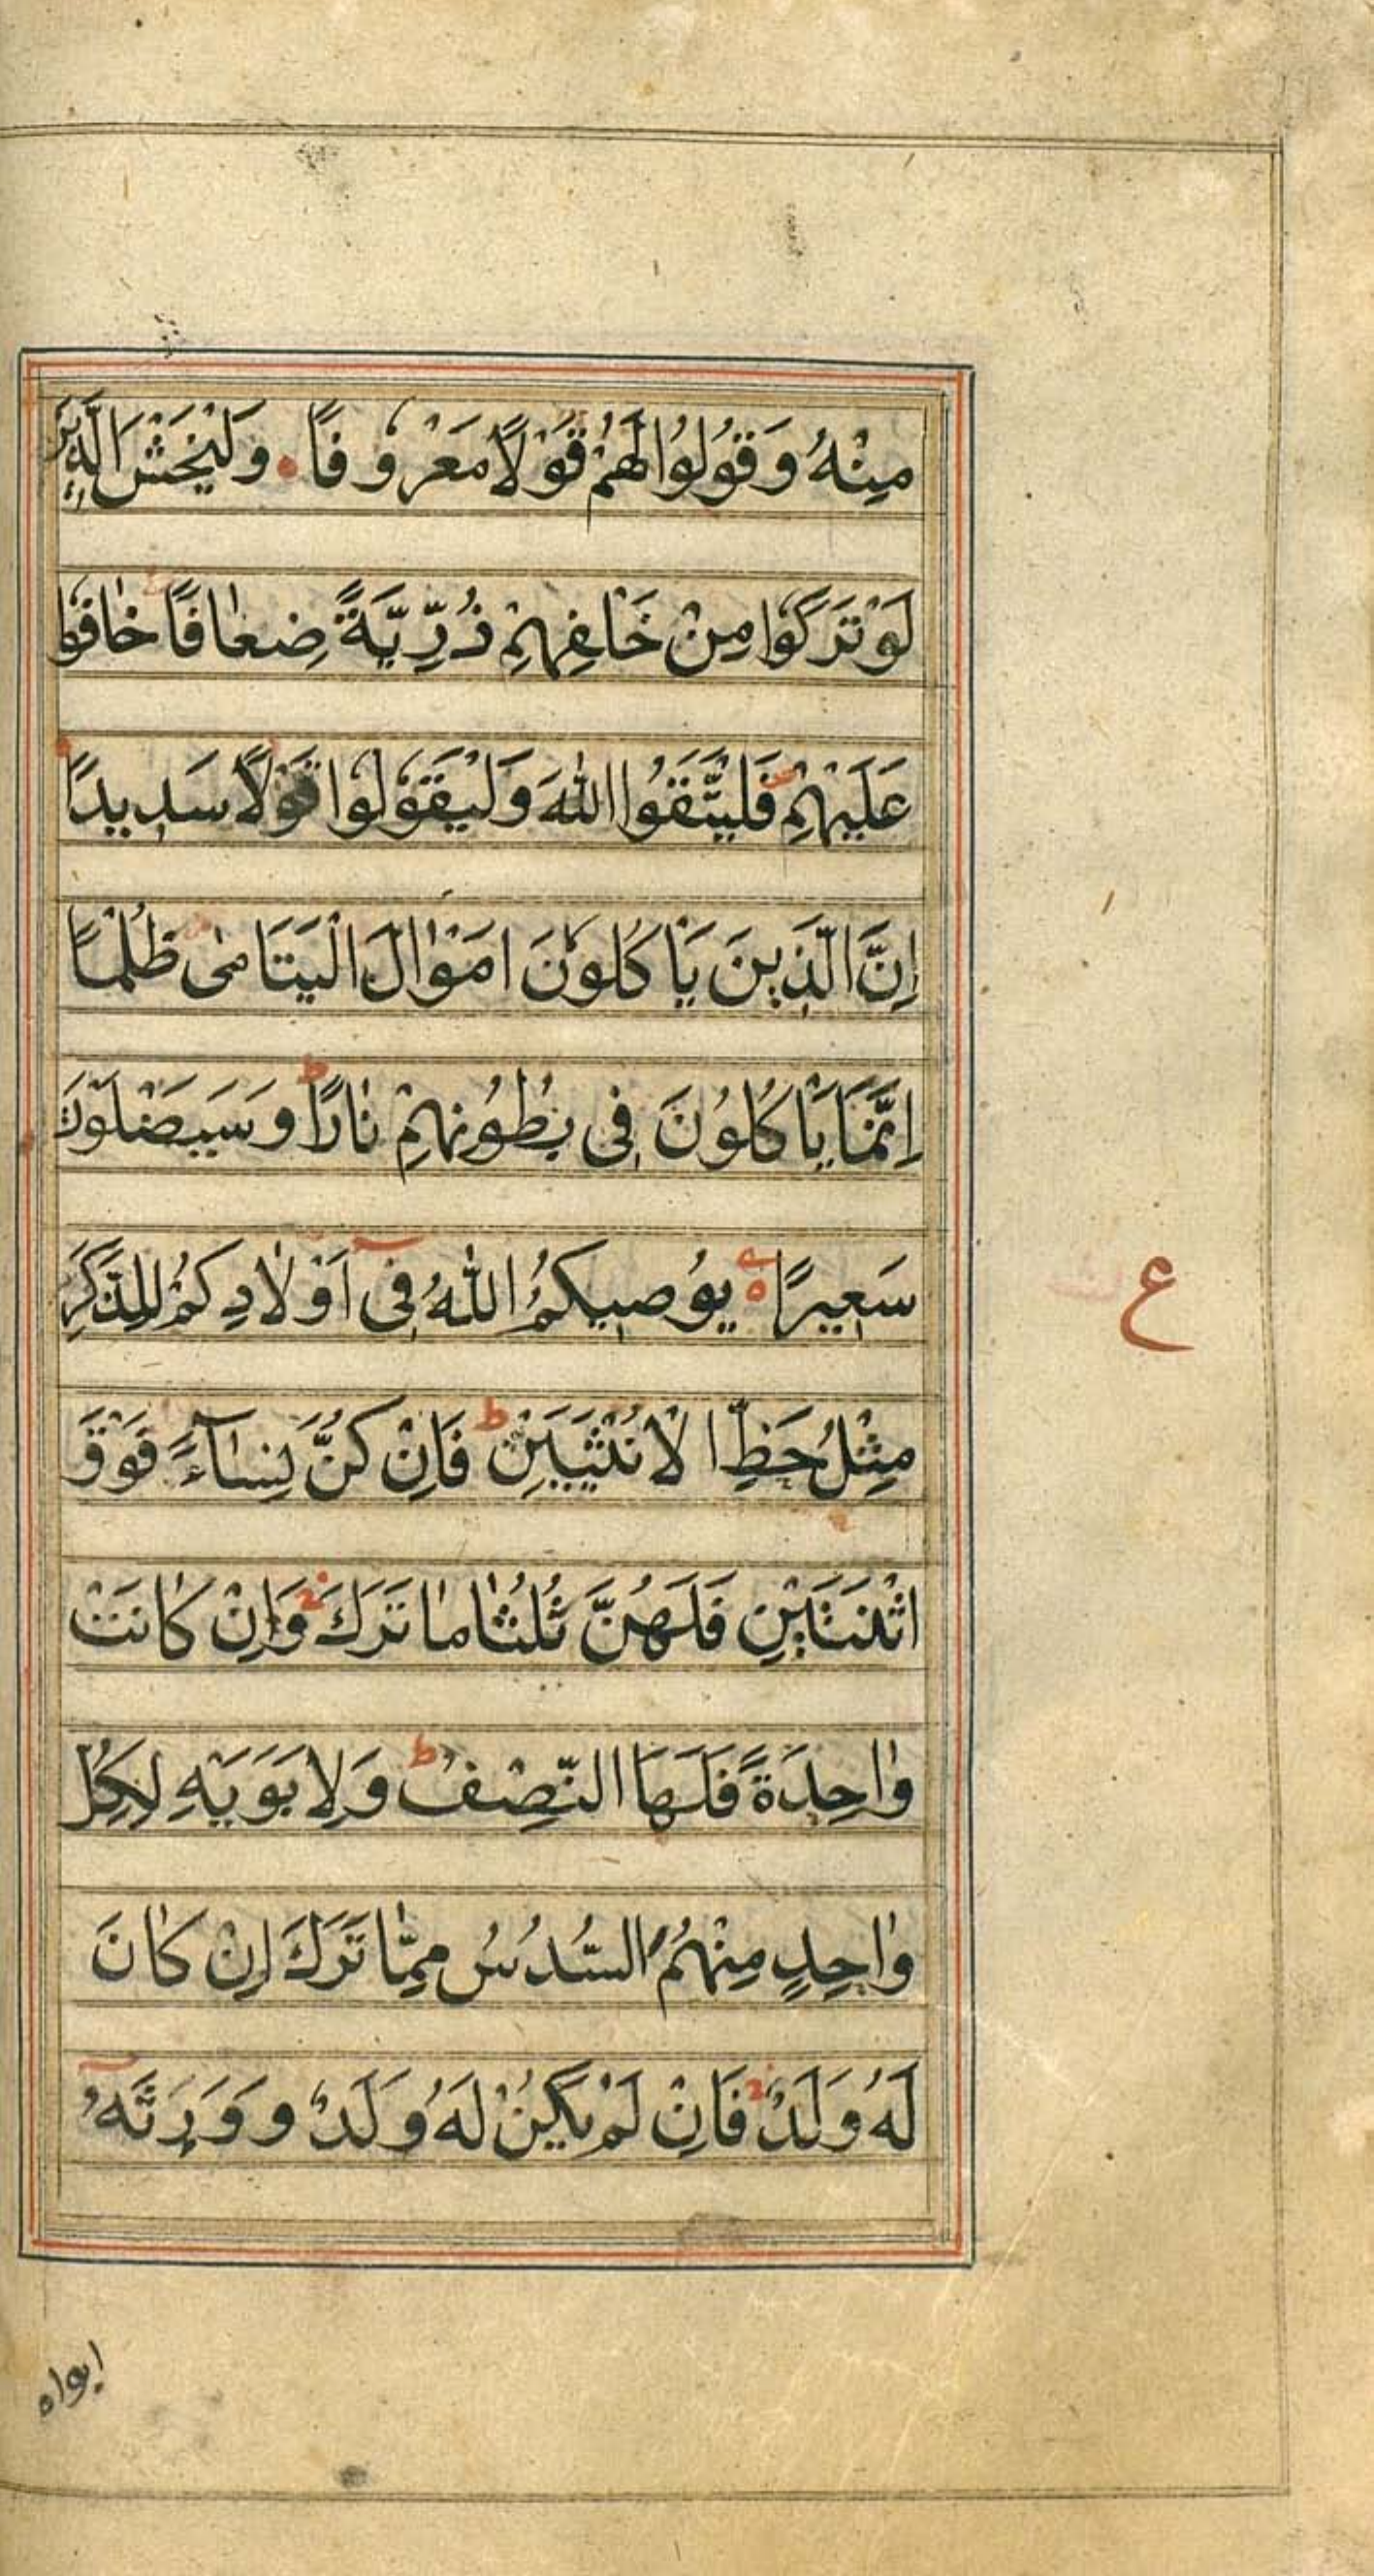 مِنْهُ وَقُولُوا لَهُمْ قَوْلًا مَعْرُوفًا وَلْيَخْشَ الَّذِينَ
لَوْ تَرَكُوا مِنْ خَلْفِهِمْ ذُرِّيَّةً ضِعَافًا خَافُوا
عَلَيْهِمْ فَلْيَتَّقُوا اللّٰهَ وَلْيَقُولُوا قَوْلًا سَدِيدًا
إِنَّ الَّذِينَ يَاْكُلُونَ اَمْوَالَ الْيَتَامٰى ظُلْمًا
اِنَّمَا يَاْكُلُونَ فِى بُطُونِهِمْ نَارًا ط وَسَيَصْلَوْنَ
سَعِيرًا يُوصِيكُمُ اللّٰهُ فِى اَوْلَادِكُمْ لِلذَّكَرِ
ع
مِثْلُ حَظِّ الْاُنْثَيَيْنِ ط فَاِنْ كُنَّ نِسَآءً فَوْقَ
اثْنَتَيْنِ فَلَهُنَّ ثُلُثَا مَا تَرَكَ وَاِنْ كَانَتْ
وَاحِدَةً فَلَهَا النِّصْفُ ط وَلِاَبَوَيْهِ لِكُلِّ
وَاحِدٍ مِنْهُمَا السُّدُسُ مِمَّا تَرَكَ اِنْ كَانَ
لَهُ وَلَدٌ فَاِنْ لَمْ يَكُنْ لَهُ وَلَدٌ وَ وَرِثَهُ
ابواه